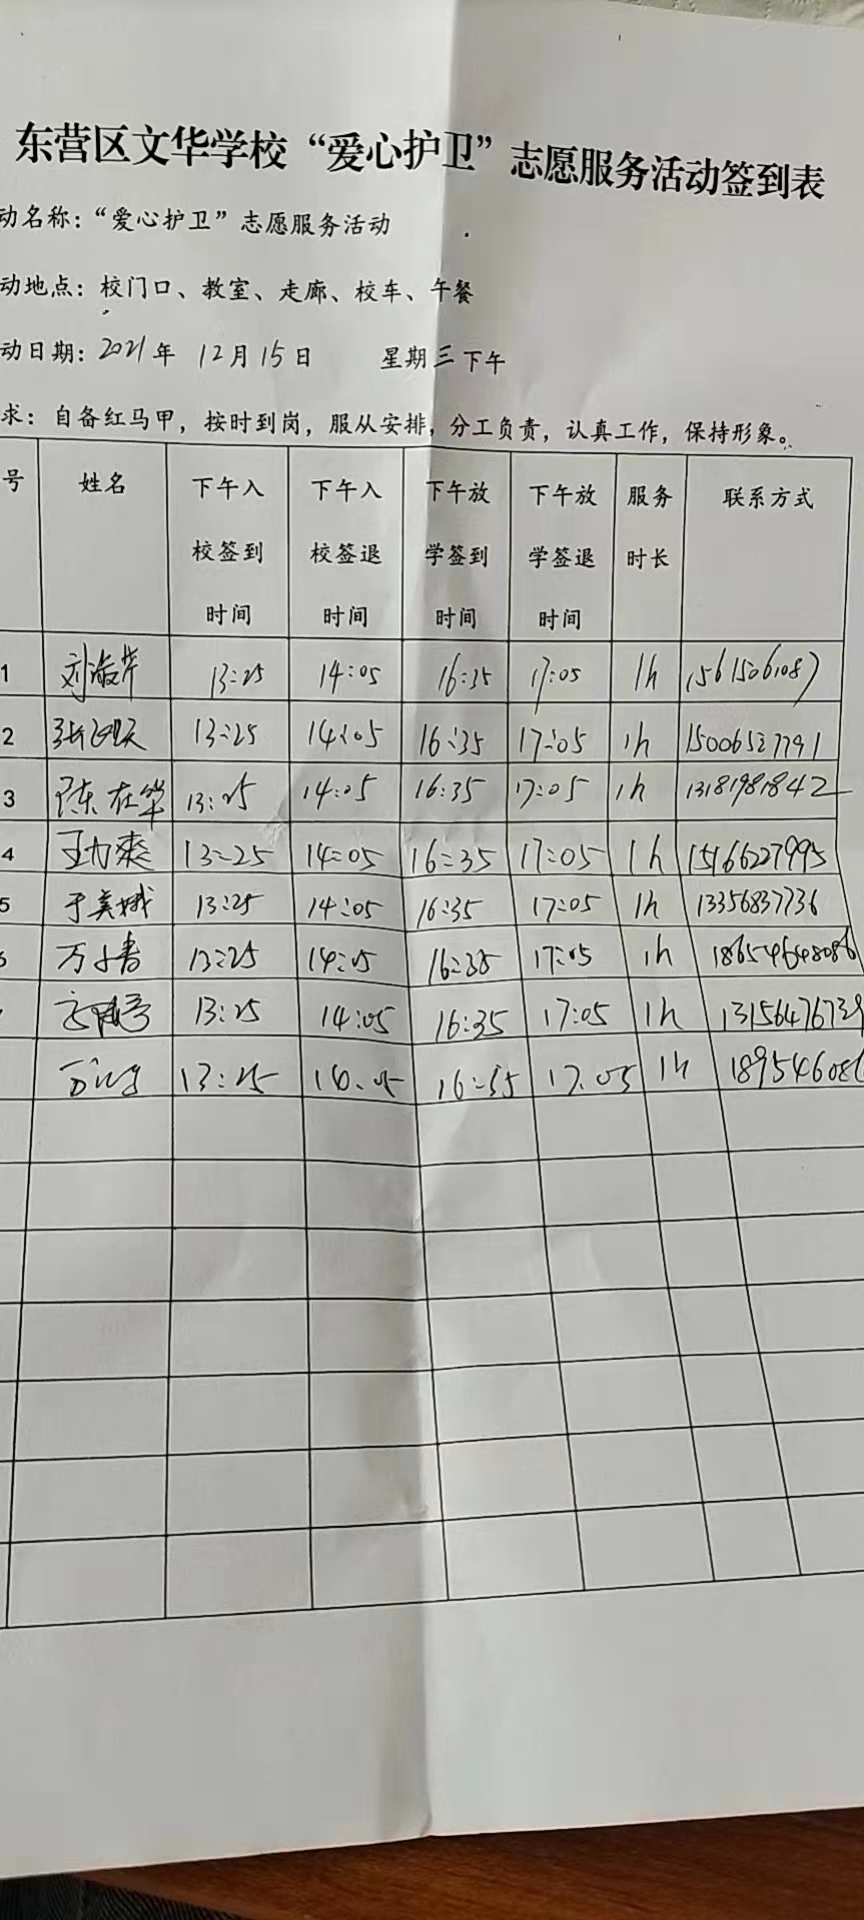 东营区文华学校“爱心护卫”志愿服务活动签到表
动名称：“爱心护卫”志愿服务活动
动地点：校门口、教室、走廊、校车、午餐
动日期：2021年 12月15日 星期三下午
求：自备红马甲，按时到岗，服从安排，分工负责，认真工作，保持形象。
号 姓名 下午入校签到时间 下午入校签退时间 下午放学签到时间 下午放学签退时间 服务时长 联系方式
1 13:25 14:05 16:35 17:05 1h 15615061087
2 13:25 14:05 16:35 17:05 1h 15006527791
3 陈在华 13:25 14:05 16:35 17:05 1h 13181981842
4 13:25 14:05 16:35 17:05 1h 15166227995
5 于美娥 13:25 14:05 16:35 17:05 1h 13356837736
13:25 14:05 16:35 17:05 1h 18654648086
13:25 14:05 16:35 17:05 1h
13:25 16:35 17.05 1h